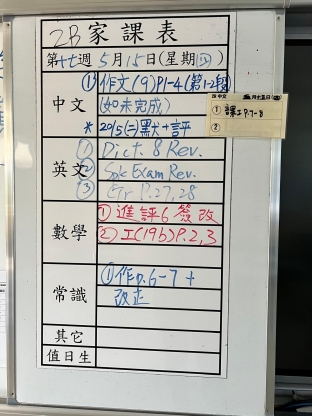 2B 家課表
第十七週 5月15日(星期四)
中文
① 作文(9)P1-4(第1-2段)
(如未完成)
* 20/5(二)黑大+評
2B 中文
① 課工 P.7-8
②
英文
① Dict. 8 Rev.
② Spk Exam Rev.
③ Gr P.27, 28
數學
① 進評6 簽改
② 工(19b)P.2,3
常識
① 作P.6-7 +
改正
其它
值日生